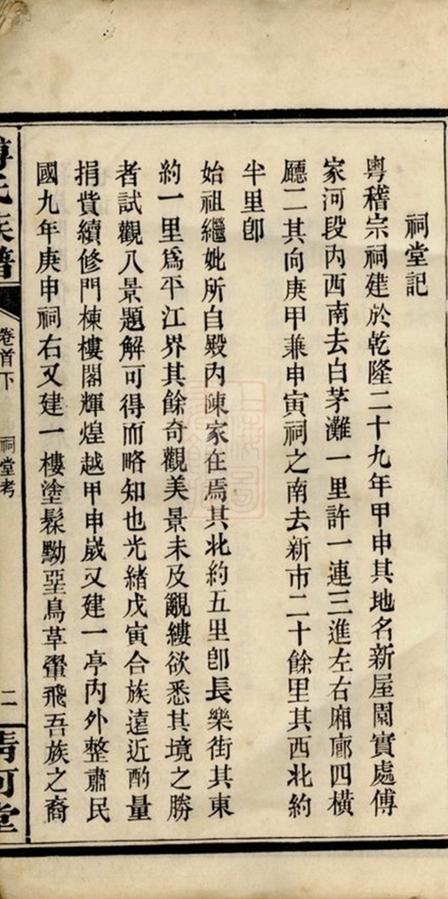 祠堂記
粵稽宗祠建於乾隆二十九年甲申其地名新屋園實處傅
家河段內西南去白茅灘一里許一連三進左右廂廊四橫
廳二其向庚甲兼申寅祠之南去新市二十餘里其西北約
半里卽
始祖繼妣所自殿內陳家在焉其北約五里卽長樂街其東
約一里爲平江界其餘奇觀美景未及覼縷欲悉其境之勝
者試觀八景題解可得而略知也光緒戊寅合族遠近酌量
捐貲續修門棟樓閣輝煌越甲申歲又建一亭內外整肅民
國九年庚申祠右又建一樓塗髹黝堊鳥革翬飛吾族之裔
傅氏族譜
卷首下
祠堂考
二
清河堂